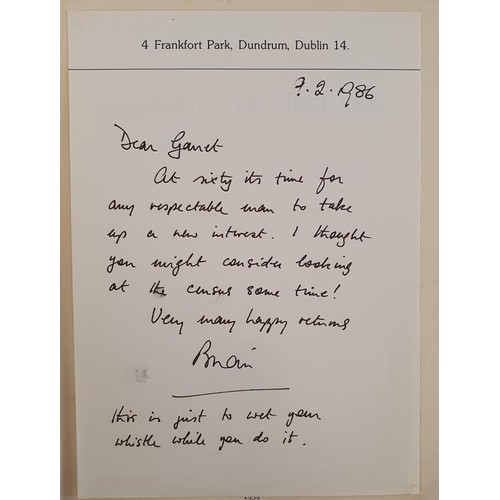 4 Frankfort Park, Dundrum, Dublin 14.
7.2.1986
Dear Garret
At sixty its time for
any respectable man to take
up a new interest. I thought
you might consider looking
at the census some time!
Very many happy returns
Brian
this is just to wet your
whistle while you do it.